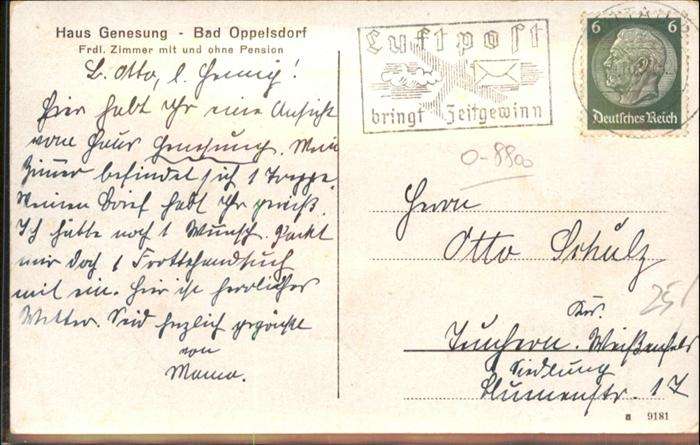 Haus Genesung - Bad Oppelsdorf
Frdl. Zimmer mit und ohne Pension
L. Otto, l. Hennig!
Hier habt Ihr eine Ansicht
vom Haus Genesung. Mein
Zimmer befindet sich 1 Treppe.
Meinen Brief habt Ihr gewiß.
Ich hätte noch 1 Wunsch. Packt
mir doch 1 Frottehandtuch
mit ein. Hier ist herrliches
Wetter. Seid herzlich gegrüßt
von
Mama.
Luftpost
bringt Zeitgewinn
6 6
Deutsches Reich
0-8800
Herrn
Otto Schulz
25/
Krs.
Teuchern. Weißenfels
Siedlung
Blumenstr. 17
9181